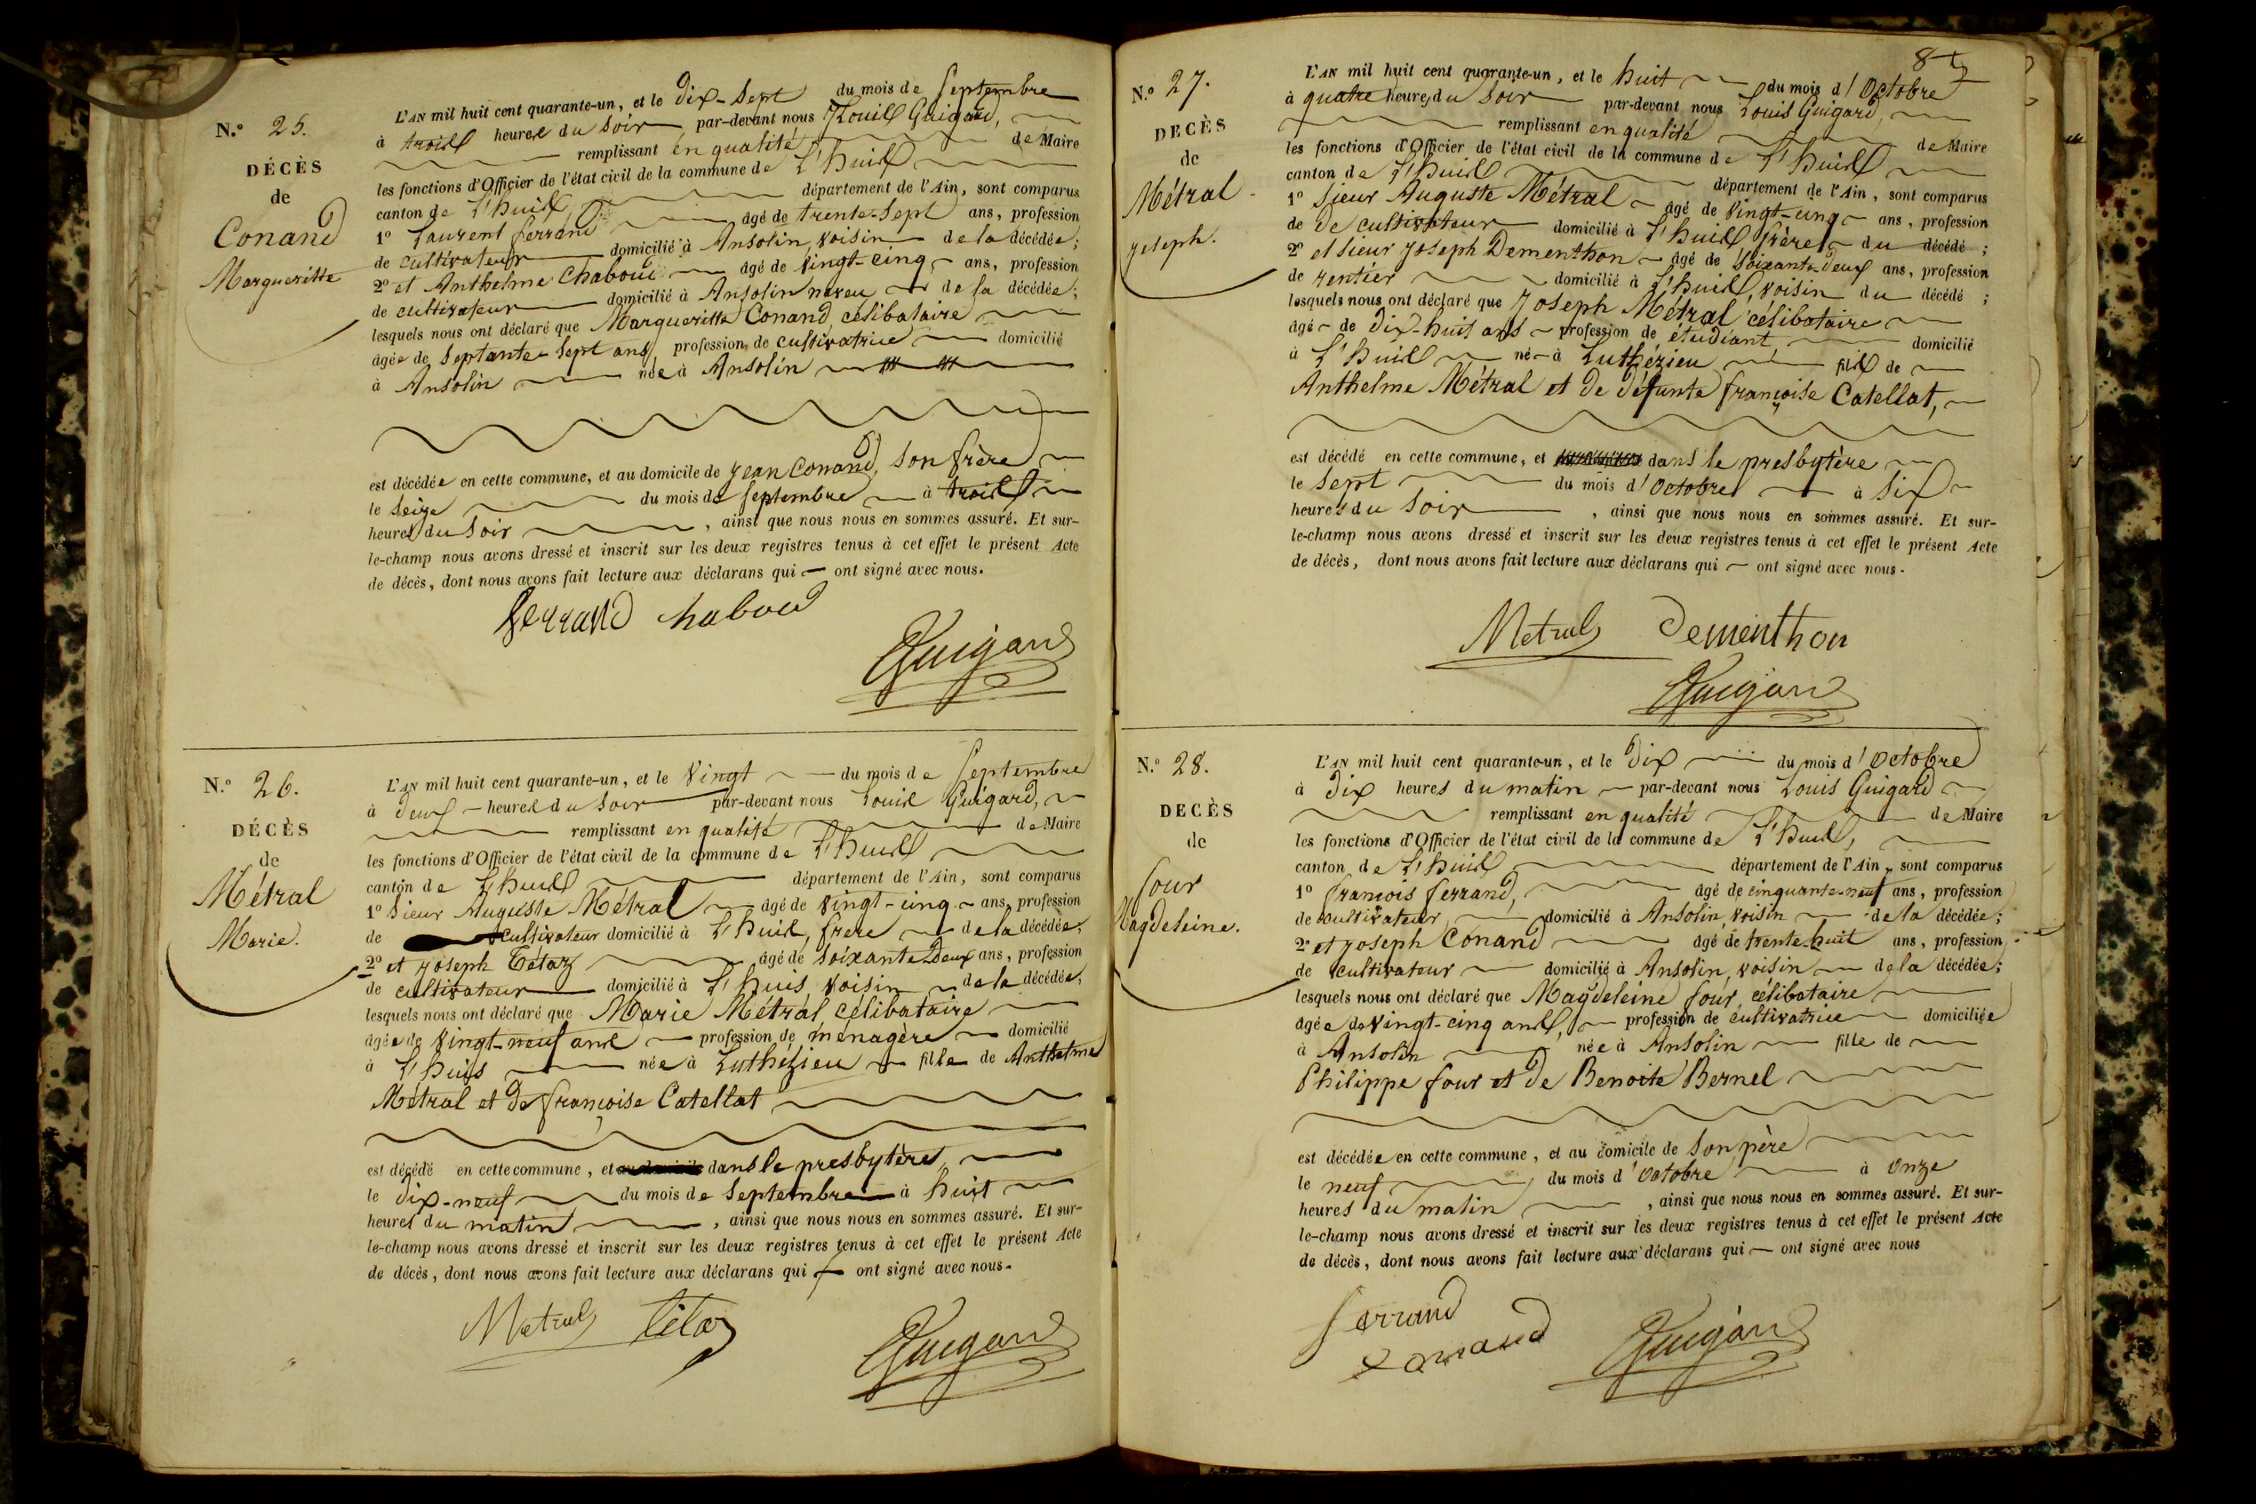 N.° 25.
DÉCÈS
de
Conand
Margueritte
L'AN mil huit cent quarante-un, et le dix-sept du mois de Septembre
à trois heures du soir par-devant nous Louis Guigard,
remplissant en qualité de Maire
les fonctions d'Officier de l'état civil de la commune de L'huis
canton de L'huis département de l'Ain, sont comparus
1° Laurent ferrand âgé de trente-sept ans, profession
de cultivateur domicilié à Ansolin, voisin de la décédée;
2° et Anthelme Chaboud âgé de vingt-cinq ans, profession
de cultivateur domicilié à Ansolin neveu de la décédée;
lesquels nous ont déclaré que Margueritte Conand célibataire
âgée de septante-sept ans, profession de cultivatrice domicilié
à Ansolin née à Ansolin
est décédée en cette commune, et au domicile de jean Conand, son frère
le seize du mois de septembre à trois
heures du soir, ainsi que nous nous en sommes assuré. Et sur-
le-champ nous avons dressé et inscrit sur les deux registres tenus à cet effet le présent Acte
de décès, dont nous avons fait lecture aux déclarans qui ont signé avec nous.
ferrand chaboud
Guigard
N.° 26.
DÉCÈS
de
Métral
Marie.
L'AN mil huit cent quarante-un, et le vingt du mois de Septembre
à deux heures du soir par-devant nous Louis Guigard,
remplissant en qualité de Maire
les fonctions d'Officier de l'état civil de la commune de L'huis
canton de L'huis département de l'Ain, sont comparus
1° sieur Auguste Métral âgé de vingt-cinq ans, profession
de cultivateur domicilié à L'huis, frère de la décédée;
2° et joseph Tétaz âgé de soixante-deux ans, profession
de cultivateur domicilié à L'huis, voisin de la décédée;
lesquels nous ont déclaré que Marie Métral célibataire
âgée de vingt-neuf ans profession de ménagère domicilié
à L'huis née à Luthézieu fille de Anthelme
Métral et de françoise Catellat
est décédé en cette commune, et dans le presbytère
le dix-neuf du mois de septembre à huit
heures du matin, ainsi que nous nous en sommes assuré. Et sur-
le-champ nous avons dressé et inscrit sur les deux registres tenus à cet effet le présent Acte
de décès, dont nous avons fait lecture aux déclarans qui ont signé avec nous.
Metral tétaz
Guigard
N.° 27.
DECÈS
de
Métral
joseph.
L'AN mil huit cent quarante-un, et le huit du mois d'Octobre
à quatre heures du soir par-devant nous Louis Guigard,
remplissant en qualité de Maire
les fonctions d'Officier de l'état civil de la commune de L'huis
canton de L'huis département de l'Ain, sont comparus
1° sieur Auguste Métral âgé de vingt-cinq ans, profession
de de cultivateur domicilié à L'huis frère du décédé;
2° et sieur joseph Dementhon âgé de soixante-deux ans, profession
de rentier domicilié à L'huis, voisin du décédé;
lesquels nous ont déclaré que joseph Métral célibataire
âgé de dix-huit ans profession de étudiant domicilié
à L'huis né à Luthézieu fils de
Anthelme Métral et de défunte françoise Catellat,
est décédé en cette commune, et dans le presbytère
le sept du mois d'octobre à six
heures du soir, ainsi que nous nous en sommes assuré. Et sur-
le-champ nous avons dressé et inscrit sur les deux registres tenus à cet effet le présent Acte
de décès, dont nous avons fait lecture aux déclarans qui ont signé avec nous.
Metral Dementhon
Guigard
N.° 28.
DECÈS
de
four
Magdeleine.
L'AN mil huit cent quarante un, et le dix du mois d'Octobre
à dix heures du matin par-devant nous Louis Guigard
remplissant en qualité de Maire
les fonctions d'Officier de l'état civil de la commune de L'huis,
canton de L'huis département de l'Ain, sont comparus
1° françois ferrand, âgé de cinquante-neuf ans, profession
de cultivateur domicilié à Ansolin, voisin de la décédée;
2° et joseph Conand âgé de trente-huit ans, profession
de cultivateur domicilié à Ansolin, voisin de la décédée;
lesquels nous ont déclaré que Magdeleine four, célibataire
âgée de vingt-cinq ans, profession de cultivatrice domiciliée
à Ansolin née à Ansolin fille de
Philippe four et de Benoite Bernel
est décédée en cette commune, et au domicile de son père
le neuf du mois d'octobre à onze
heures du matin, ainsi que nous nous en sommes assuré. Et sur-
le-champ nous avons dressé et inscrit sur les deux registres tenus à cet effet le présent Acte
de décès, dont nous avons fait lecture aux déclarans qui ont signé avec nous
ferrand
conand Guigard